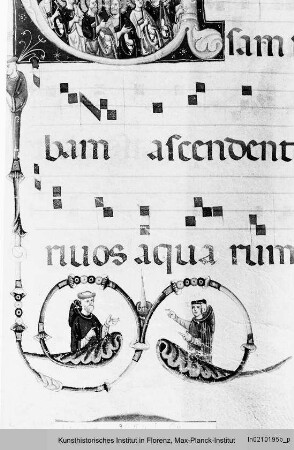 sam
bam ascendent
riuos aqua rum
Kunsthistorisches Institut in Florenz, Max-Planck-Institut